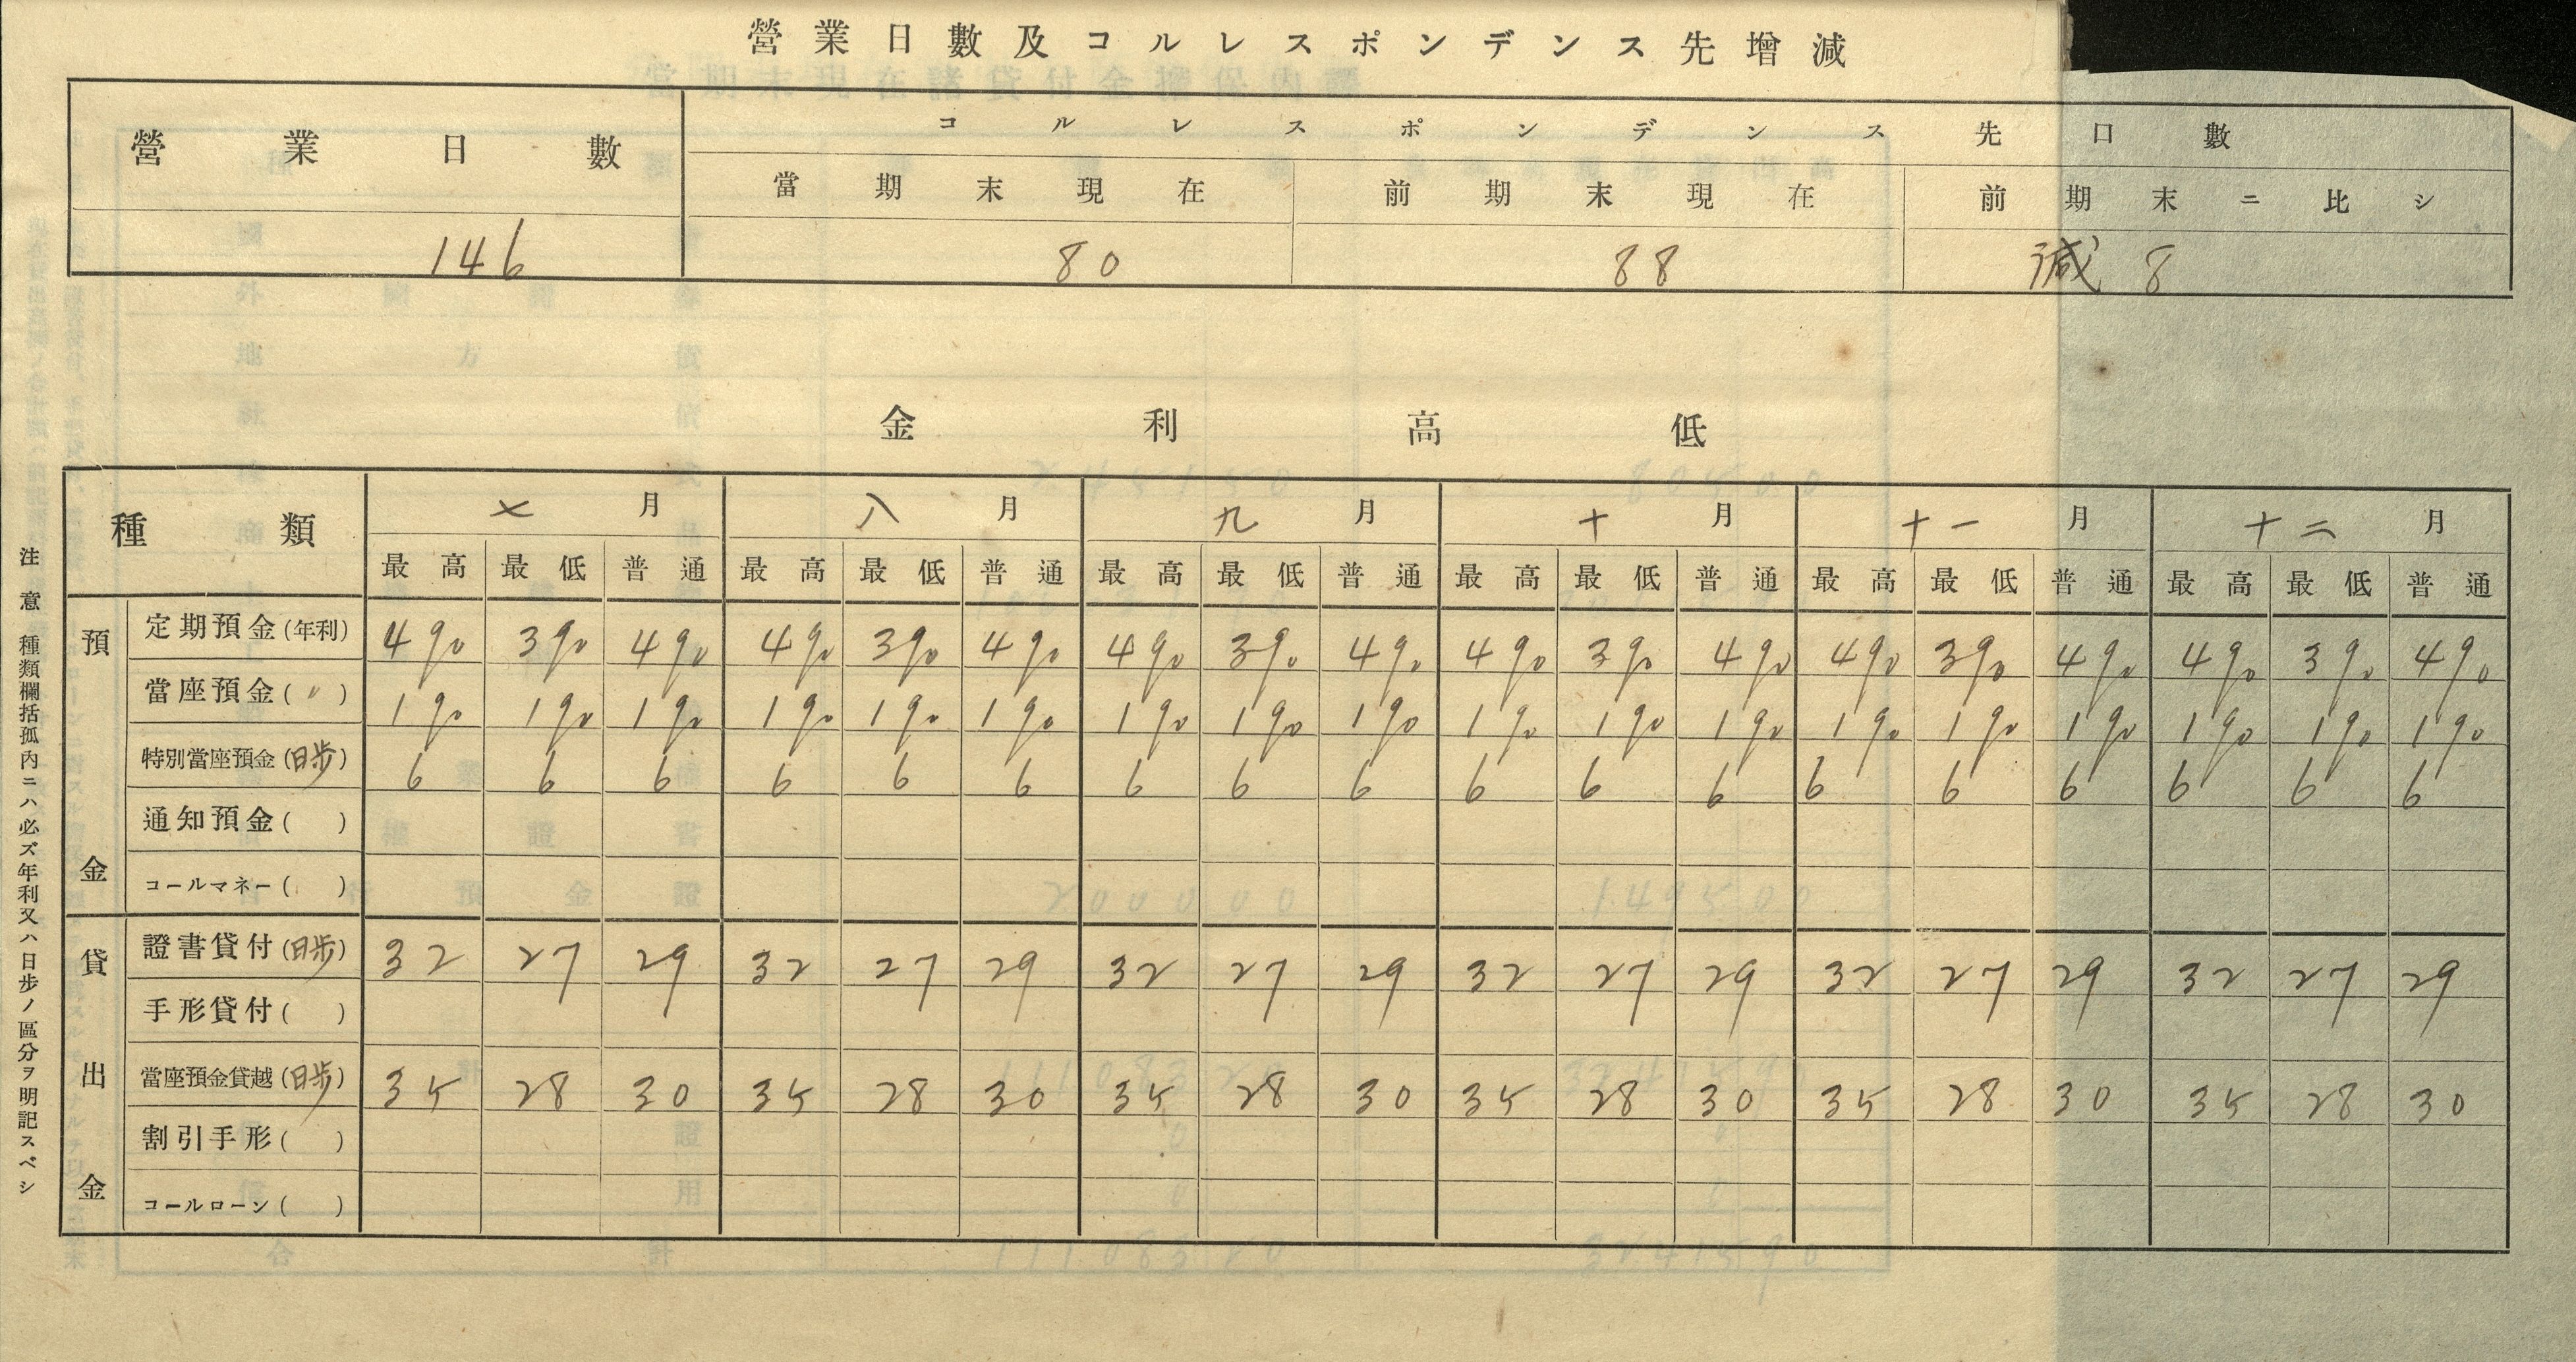 營業日數及コルレスポンデンス先增減
營業日數 コルレスポンデンス先口數
當期末現在 前期末現在 前期末ニ比シ
146 80 88 減 8
金利高低
種類 七月 八月 九月 十月 十一月 十二月
最高 最低 普通 最高 最低 普通 最高 最低 普通 最高 最低 普通 最高 最低 普通 最高 最低 普通
預金
定期預金(年利) 4% 3% 4% 4% 3% 4% 4% 3% 4% 4% 3% 4% 4% 3% 4% 4% 3% 4%
當座預金(〃) 1% 1% 1% 1% 1% 1% 1% 1% 1% 1% 1% 1% 1% 1% 1% 1% 1% 1%
特別當座預金(日步) 6 6 6 6 6 6 6 6 6 6 6 6 6 6 6 6 6 6
通知預金( )
コールマネー( )
貸出金
證書貸付(日步) 32 27 29 32 27 29 32 27 29 32 27 29 32 27 29 32 27 29
手形貸付( )
當座預金貸越(日步) 35 28 30 35 28 30 35 28 30 35 28 30 35 28 30 35 28 30
割引手形( )
コールローン( )
注意 種類欄括孤內ニハ必ズ年利又ハ日步ノ區分ヲ明記スベシ